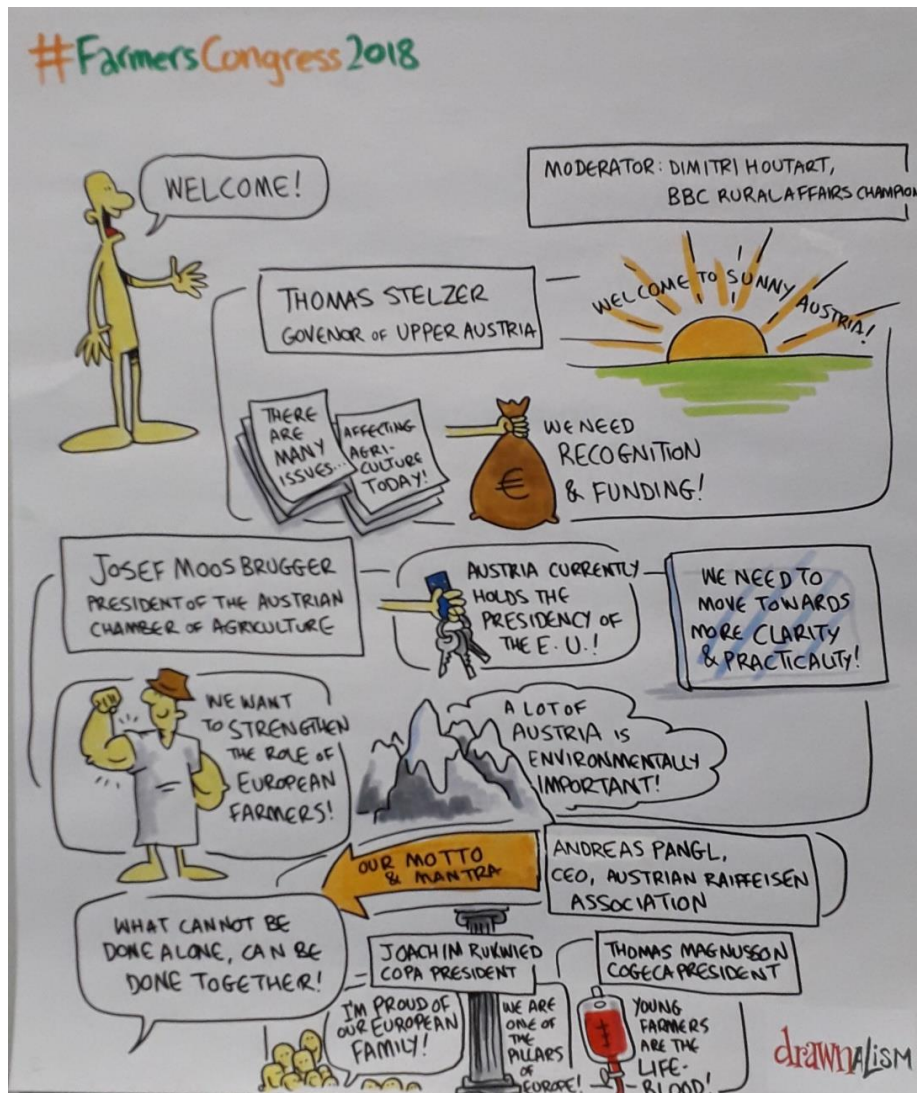 #FarmersCongress2018
WELCOME!
MODERATOR: DIMITRI HOUTART,
BBC RURAL AFFAIRS CHAMPION
THOMAS STELZER
GOVENOR OF UPPER AUSTRIA
WELCOME TO SUNNY AUSTRIA!
THERE
ARE
MANY
ISSUES...
AFFECTING
AGRI-
CULTURE
TODAY!
€
WE NEED
RECOGNITION
& FUNDING!
JOSEF MOOSBRUGGER
PRESIDENT OF THE AUSTRIAN
CHAMBER OF AGRICULTURE
AUSTRIA CURRENTLY
HOLDS THE
PRESIDENCY OF
THE E.U.!
WE NEED TO
MOVE TOWARDS
MORE CLARITY
& PRACTICALITY!
WE WANT
TO STRENGTHEN
THE ROLE OF
EUROPEAN
FARMERS!
A LOT OF
AUSTRIA IS
ENVIRONMENTALLY
IMPORTANT!
OUR MOTTO
& MANTRA
ANDREAS PANGL,
CEO, AUSTRIAN RAIFFEISEN
ASSOCIATION
WHAT CANNOT BE
DONE ALONE, CAN BE
DONE TOGETHER!
JOACHIM RUKWIED
COPA PRESIDENT
I'M PROUD OF
OUR EUROPEAN
FAMILY!
WE ARE
ONE OF
THE
PILLARS
OF
EUROPE!
THOMAS MAGNUSSON
COGECA PRESIDENT
YOUNG
FARMERS
ARE THE
LIFE-
BLOOD!
drawnalism